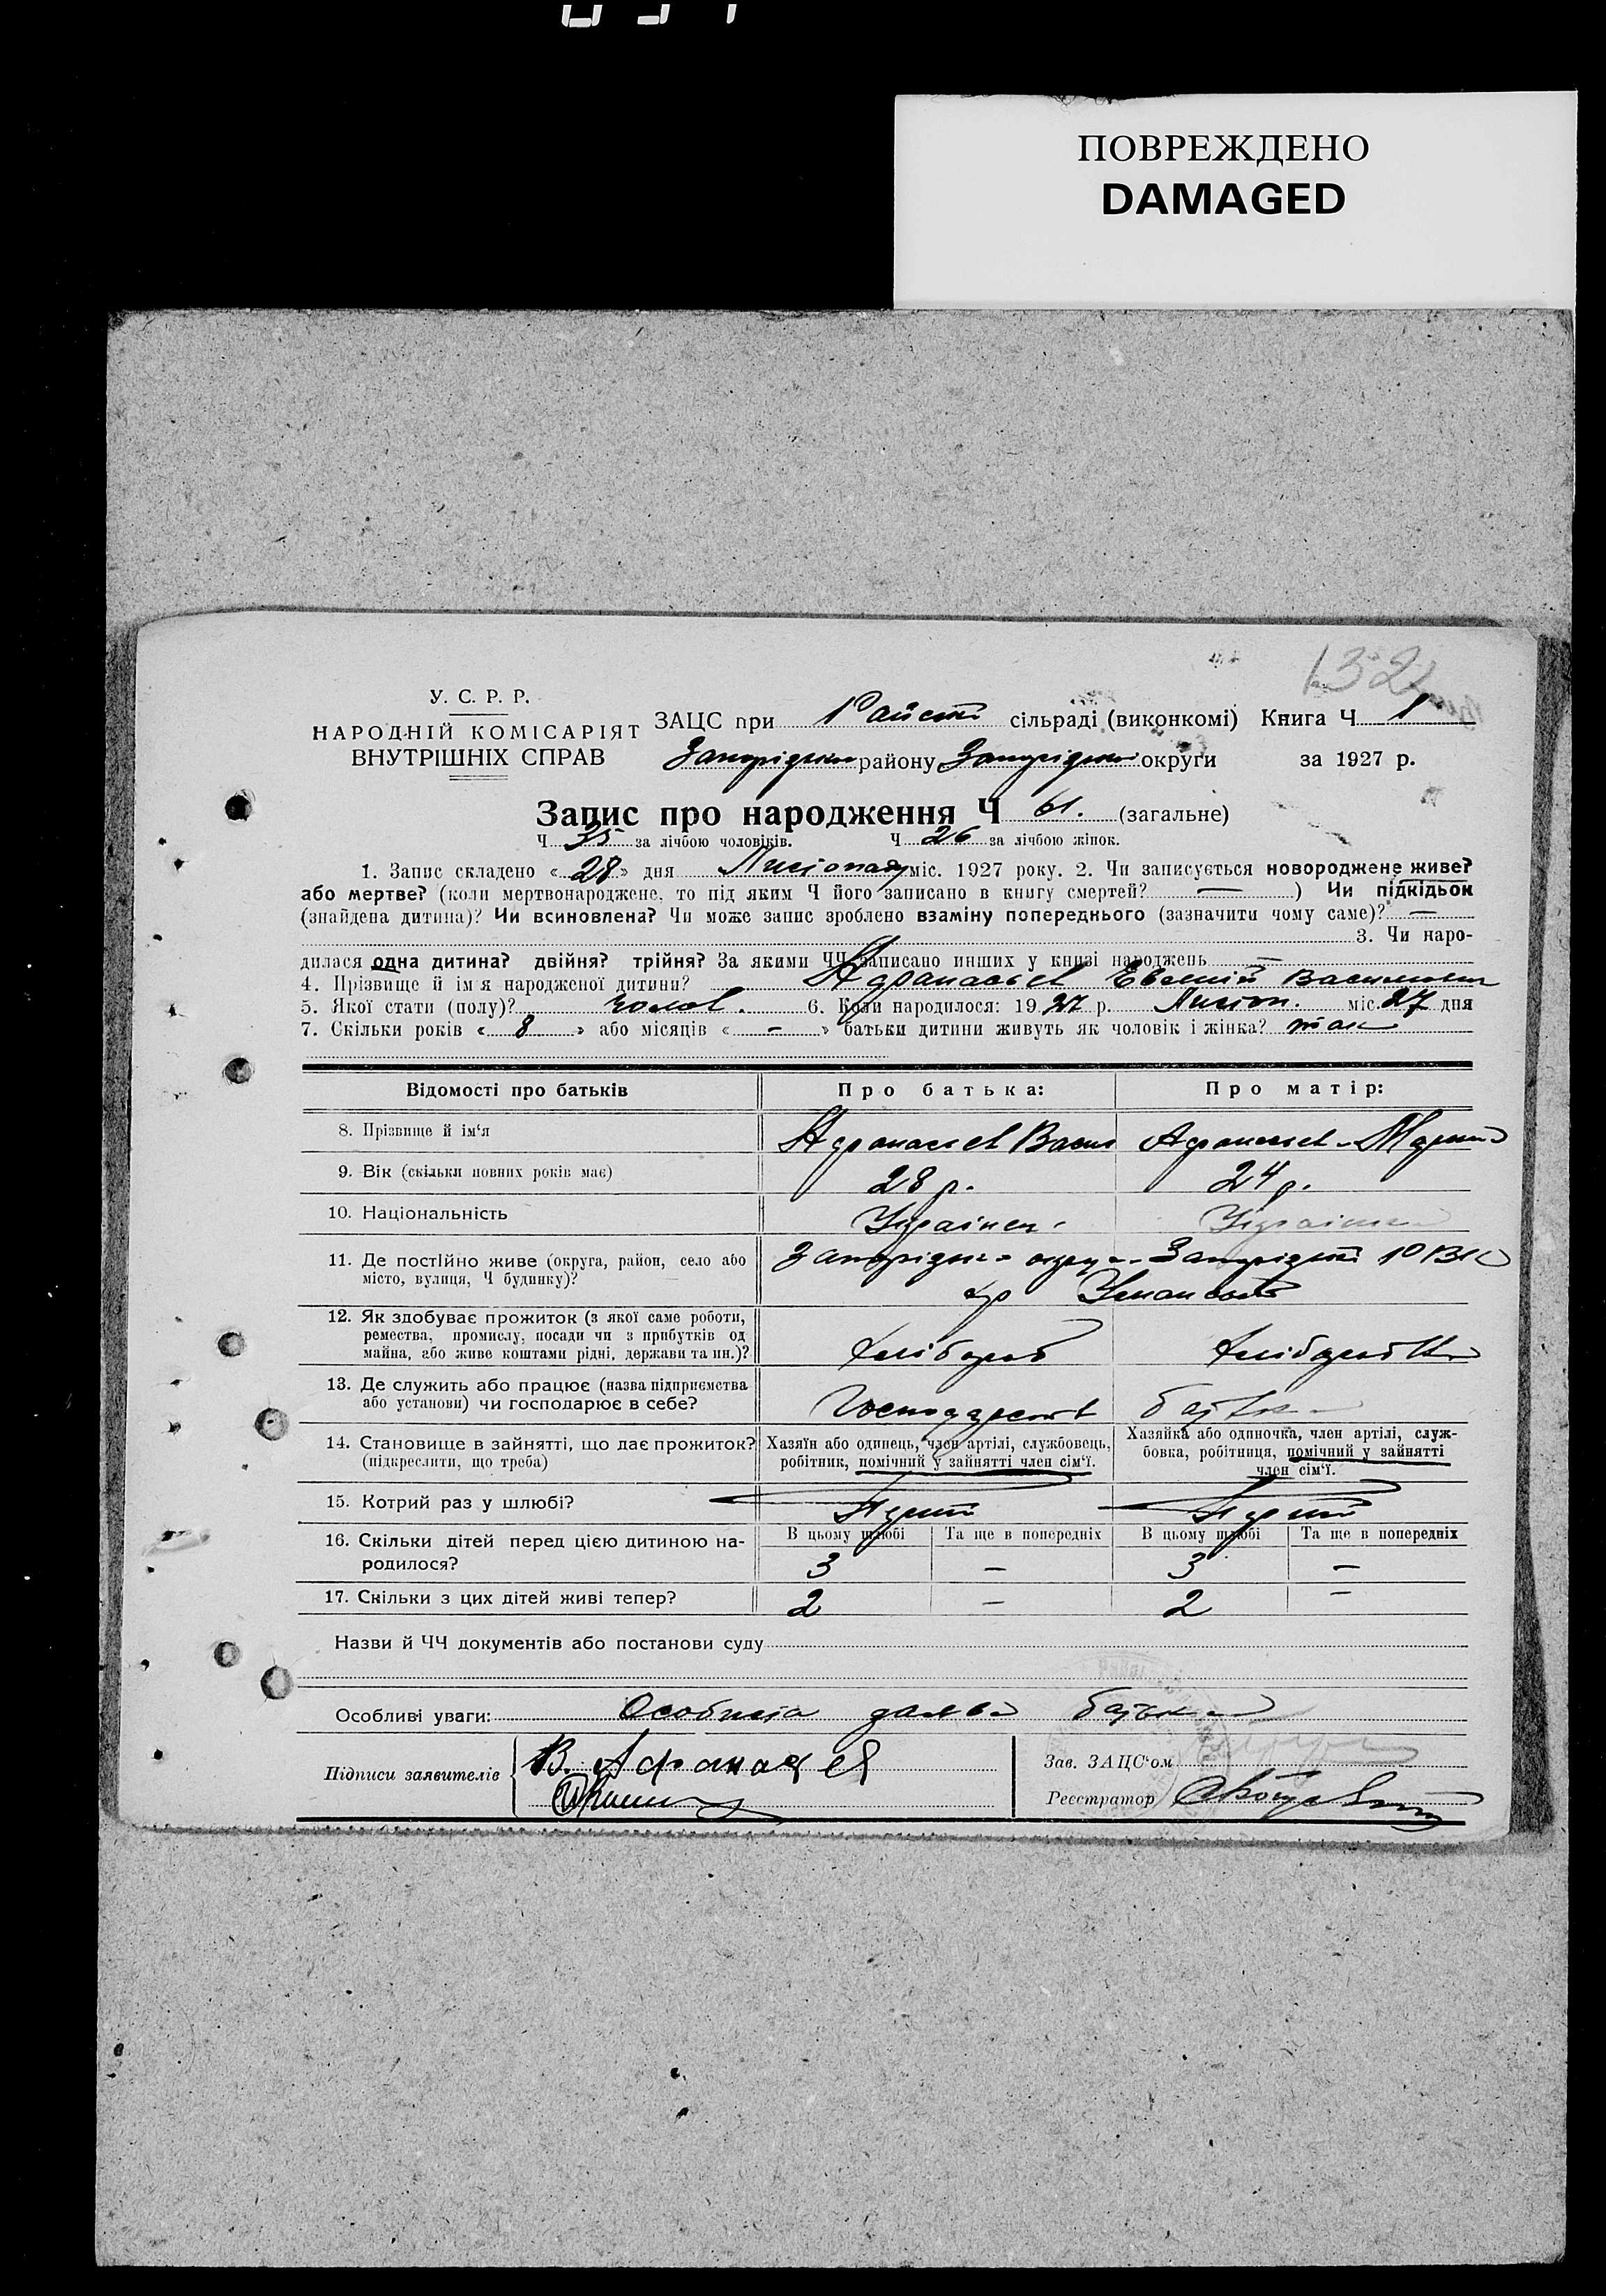 ПОВРЕЖДЕНО
DAMAGED
132
У. С. Р. Р.
НАРОДНІЙ КОМІСАРІЯТ
ВНУТРІШНІХ СПРАВ
ЗАЦС при сільраді (виконкомі) Книга Ч 1
району округи за 1927 р.
Запис про народження Ч 61. (загальне)
Ч 35 за лічбою чоловіків. Ч 26 за лічбою жінок.
1. Запис складено « 28 » дня Листопаду міс. 1927 року. 2. Чи записується новороджене живе?
або мертве? (коли мертвонароджене, то під яким Ч його записано в книгу смертей? — ) Чи підкідьок
(знайдена дитина)? Чи всиновлена? Чи може запис зроблено взаміну попереднього (зазначити чому саме)? —
3. Чи наро-
дилася одна дитина? двійня? трійня? За якими ЧЧ записано инших у книзі народжень —
4. Прізвище й ім'я народженої дитини? Афанасьєв Василович
5. Якої стати (полу)? чолов. 6. Коли народилося: 1927 р. Листоп. міс. 27 дня
7. Скільки років « 8 » або місяців « - » батьки дитини живуть як чоловік і жінка? так
Відомості про батьків Про батька: Про матір:
8. Прізвище й ім'я Афанасьєв Васил Афанасьєв
9. Вік (скільки повних років має) 28 р. 24 р.
10. Національність Українец Українка
11. Де постійно живе (округа, район, село або
місто, вулиця, Ч будинку)?
12. Як здобуває прожиток (з якої саме роботи,
ремества, промислу, посади чи з прибутків од
майна, або живе коштами рідні, держави та ин.)? Хлібороб
13. Де служить або працює (назва підприємства
або установи) чи господарює в себе? батька
14. Становище в зайнятті, що дає прожиток?
(підкреслити, що треба)
Хазяїн або одинець, член артілі, службовець,
робітник, помічний у зайнятті член сім'ї.
Хазяйка або одиночка, член артілі, служ-
бовка, робітниця, помічний у зайнятті
член сім'ї.
15. Котрий раз у шлюбі?
16. Скільки дітей перед цією дитиною на-
родилося?
В цьому шлюбі Та ще в попередніх В цьому шлюбі Та ще в попередніх
3 — 3 —
17. Скільки з цих дітей живі тепер? 2 — 2 —
Назви й ЧЧ документів або постанови суду
Особливі уваги: Особиста батька
Підписи заявителів В. Афанасєв
Зав. ЗАЦС'ом
Реєстратор